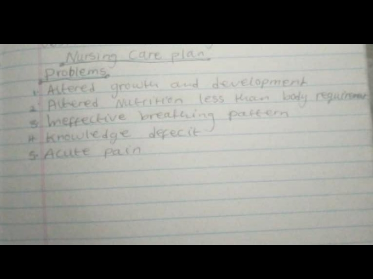 Nursing care plan
Problems
1. Altered growth and development
2. Altered Nutrition less than body requirement
3. Ineffective breathing pattern
4. Knowledge deficit
5. Acute pain